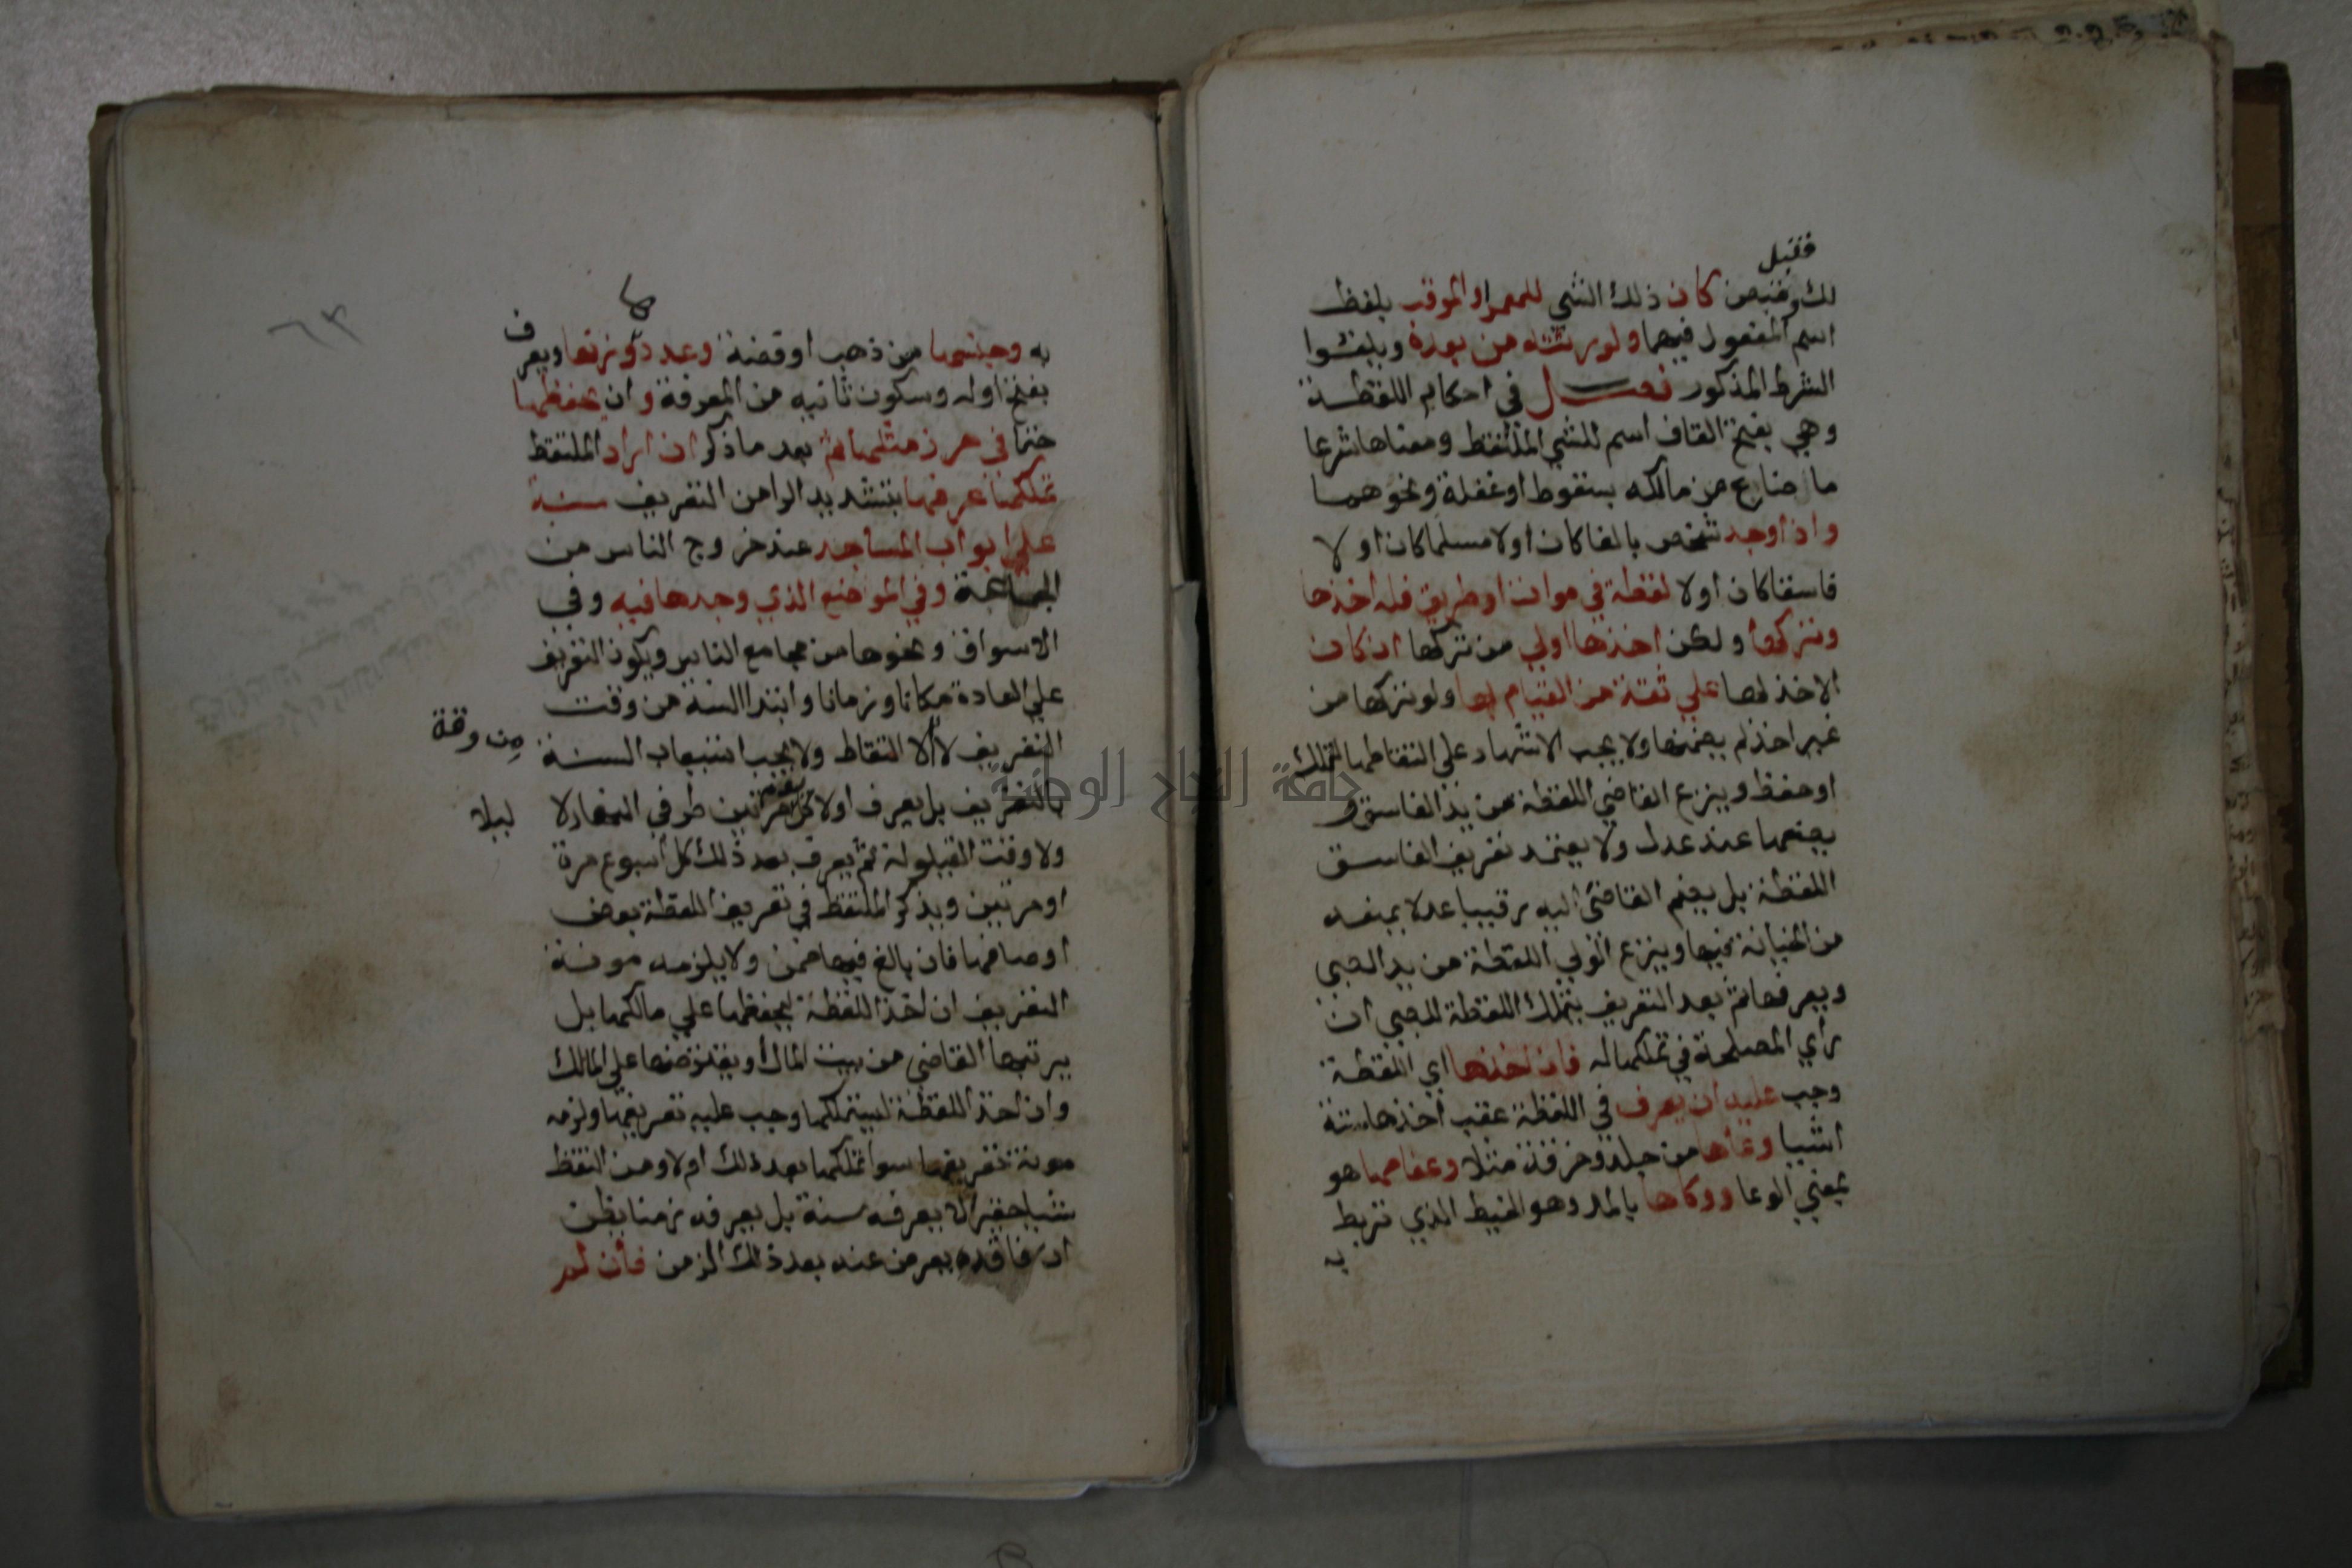 فقبل
لك وقبض كان ذلك الشي للمعمر او المرقب بلفظ
اسم المفعول فيهما ولورثته من بعده ويلغوا
الشرط المذكور فصل في احكام اللقطة
وهي بفتح القاف اسم للشي الملتقط ومعناها شرعا
ما ضاع من مالكه بسقوط او غفلة ونحوهما
واذا وجد شخص بالغا كان اولا مسلما كان او لا
فاسقا كان اولا لقطة في موات او طريق فله اخذها
وتركها ولكن اخذها اولي من تركها ان كان
الاخذ لها علي ثقة من القيام بها ولو تركها من
غير اخذ لم يضمنها ولا يجب الاشهاد علي التقاطها لتملك
او حفظ وينزع القاضي اللقطة من يد الفاسق و
يضعها عند عدل ولا يعتمد تعريف الفاسق
اللقطة بل يضم القاضي اليه رقيبا عدلا يمنعه
من الخيانة فيها وينزع الولي اللقطة من يد الصبي
ويعرفها ثم بعد التعريف يتملك اللقطة للصبي ان
راي المصلحة في تملكها له فان اخذها اي اللقطة
وجب عليه ان يعرف في اللقطة عقب اخذها ستة
اشيا وعاها من جلد وخرقة مثلا وعفاصها هو
بمعني الوعا ووكاها بالمد وهو الخيط الذي تربط
به
٦٣
به وجنسها من ذهب او فضة وعددها ووزنها ويعرف
بفتح اوله وسكون ثانيه من المعرفة وان يحفظها
حتما في حرز مثلها ثم بعد ما ذكر ان اراد الملتقط
تملكها عرفها بتشديد الرا من التعريف سنة
علي ابواب المساجد عند خروج الناس من
الجماعة وفي المواضع الذي وجدها فيه وفي
الاسواق ونحوها من مجامع الناس ويكون التعريف
علي العادة مكانا وزمانا وابتدا السنة من وقت
التعريف لا الالتقاط ولا يجب استيعاب السنة
من وقة
بالتعريف بل يعرف اولا كل يوم مرتين طرفي النهار لا
ليلا
ولا وقت القيلولة ثم يعرف بعد ذلك كل اسبوع مرة
او مرتين ويذكر الملتقط في تعريف اللقطة بعض
اوصافها فان بالغ فيها ضمن ولا يلزمه مونة
التعريف ان اخذ اللقطة ليحفظها علي مالكها بل
يرتبها القاضي من بيت المال او يقترضها علي المالك
وان اخذ اللقطة ليتملكها وجب عليه تعريفها ولزمه
مونة تعريفها سوا تملكها بعد ذلك اولا ومن التقط
شيا حقيرا لا يعرفه سنة بل يعرفه زمنا يظن
ان فاقده يعرض عنه بعد ذلك الزمن فان لم
جامعة النجاح الوطنية